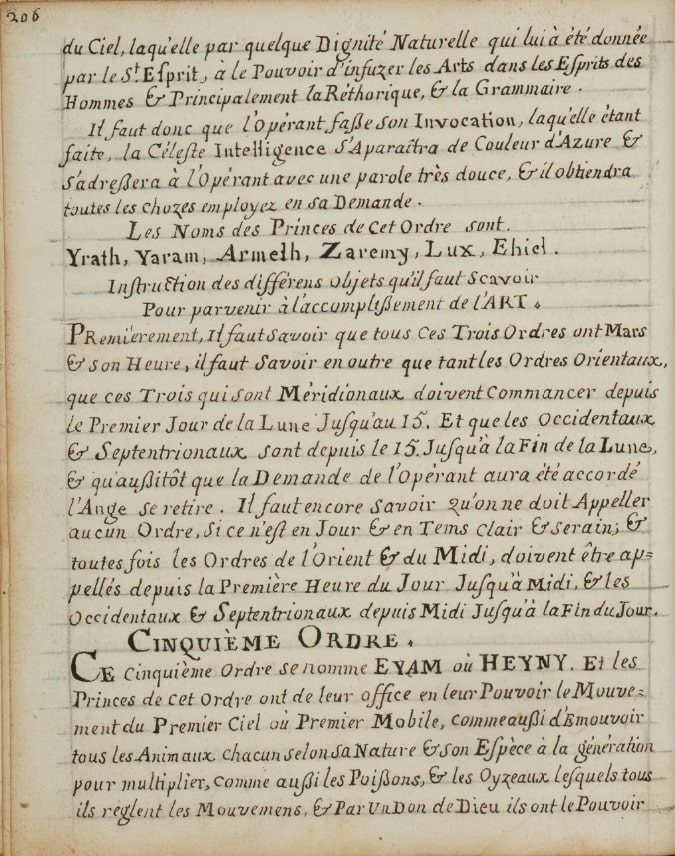 206
du Ciel, laqu'elle par quelque Dignité Naturelle qui lui à été donnée
par le S.t Esprit, à le Pouvoir d'infuzer les Arts dans les Esprits des
Hommes & Principalement la Réthorique, & la Grammaire.
Il faut donc que l'Opérant faße son Invocation, laqu'elle étant
faite, la Céleste Intelligence s'Aparaîtra de Couleur d'Azure &
s'adreßera à l'Opérant avec une parole très douce, & il obtiendra
toutes les chozes employez en sa Demande.
Les Noms des Princes de Cet Ordre sont.
Yrath, Yaram, Armelh, Zaremy, Lux, Ehiel.
Instruction des différens objets qu'il faut Scavoir
Pour parvenir à l'accomplißement de l'ART.
PRemiérement, Il faut savoir que tous Ces Trois Ordres ont Mars
& son Heure, il faut Savoir en outre que tant les Ordres Orientaux,
que ces Trois qui sont Méridionaux doivent Commancer depuis
le Premier Jour de la Lune Jusqu'au 15. Et que les Occidentaux
& Septentrionaux sont depuis le 15. Jusqu'à la Fin de la Lune,
& qu'außitôt que la Demande de l'Opérant aura été accordé
l'Ange se retire. Il faut encore savoir qu'on ne doit Appeller
aucun Ordre, Si ce n'est en Jour & en Tems Clair & serain; &
toutes fois les Ordres de l'Orient & du Midi, doivent être ap=
pellés depuis la Première Heure du Jour Jusqu'à Midi, & les
Occidentaux & Septentrionaux depuis Midi Jusqu'à la Fin du Jour.
CINQUIÈME ORDRE.
CE Cinquième Ordre se nomme EYAM où HEYNY. Et les
Princes de Cet Ordre ont de leur office en leur Pouvoir le Mouve=
ment du Premier Ciel où Premier Mobile, comme außi d'Emouvoir
tous les Animaux chacun selon sa Nature & son Espèce à la génération
pour multiplier, comme außi les Poißons, & les Oyzeaux lesquels tous
ils reglent les Mouvemens, & Par Un Don de Dieu ils ont le Pouvoir